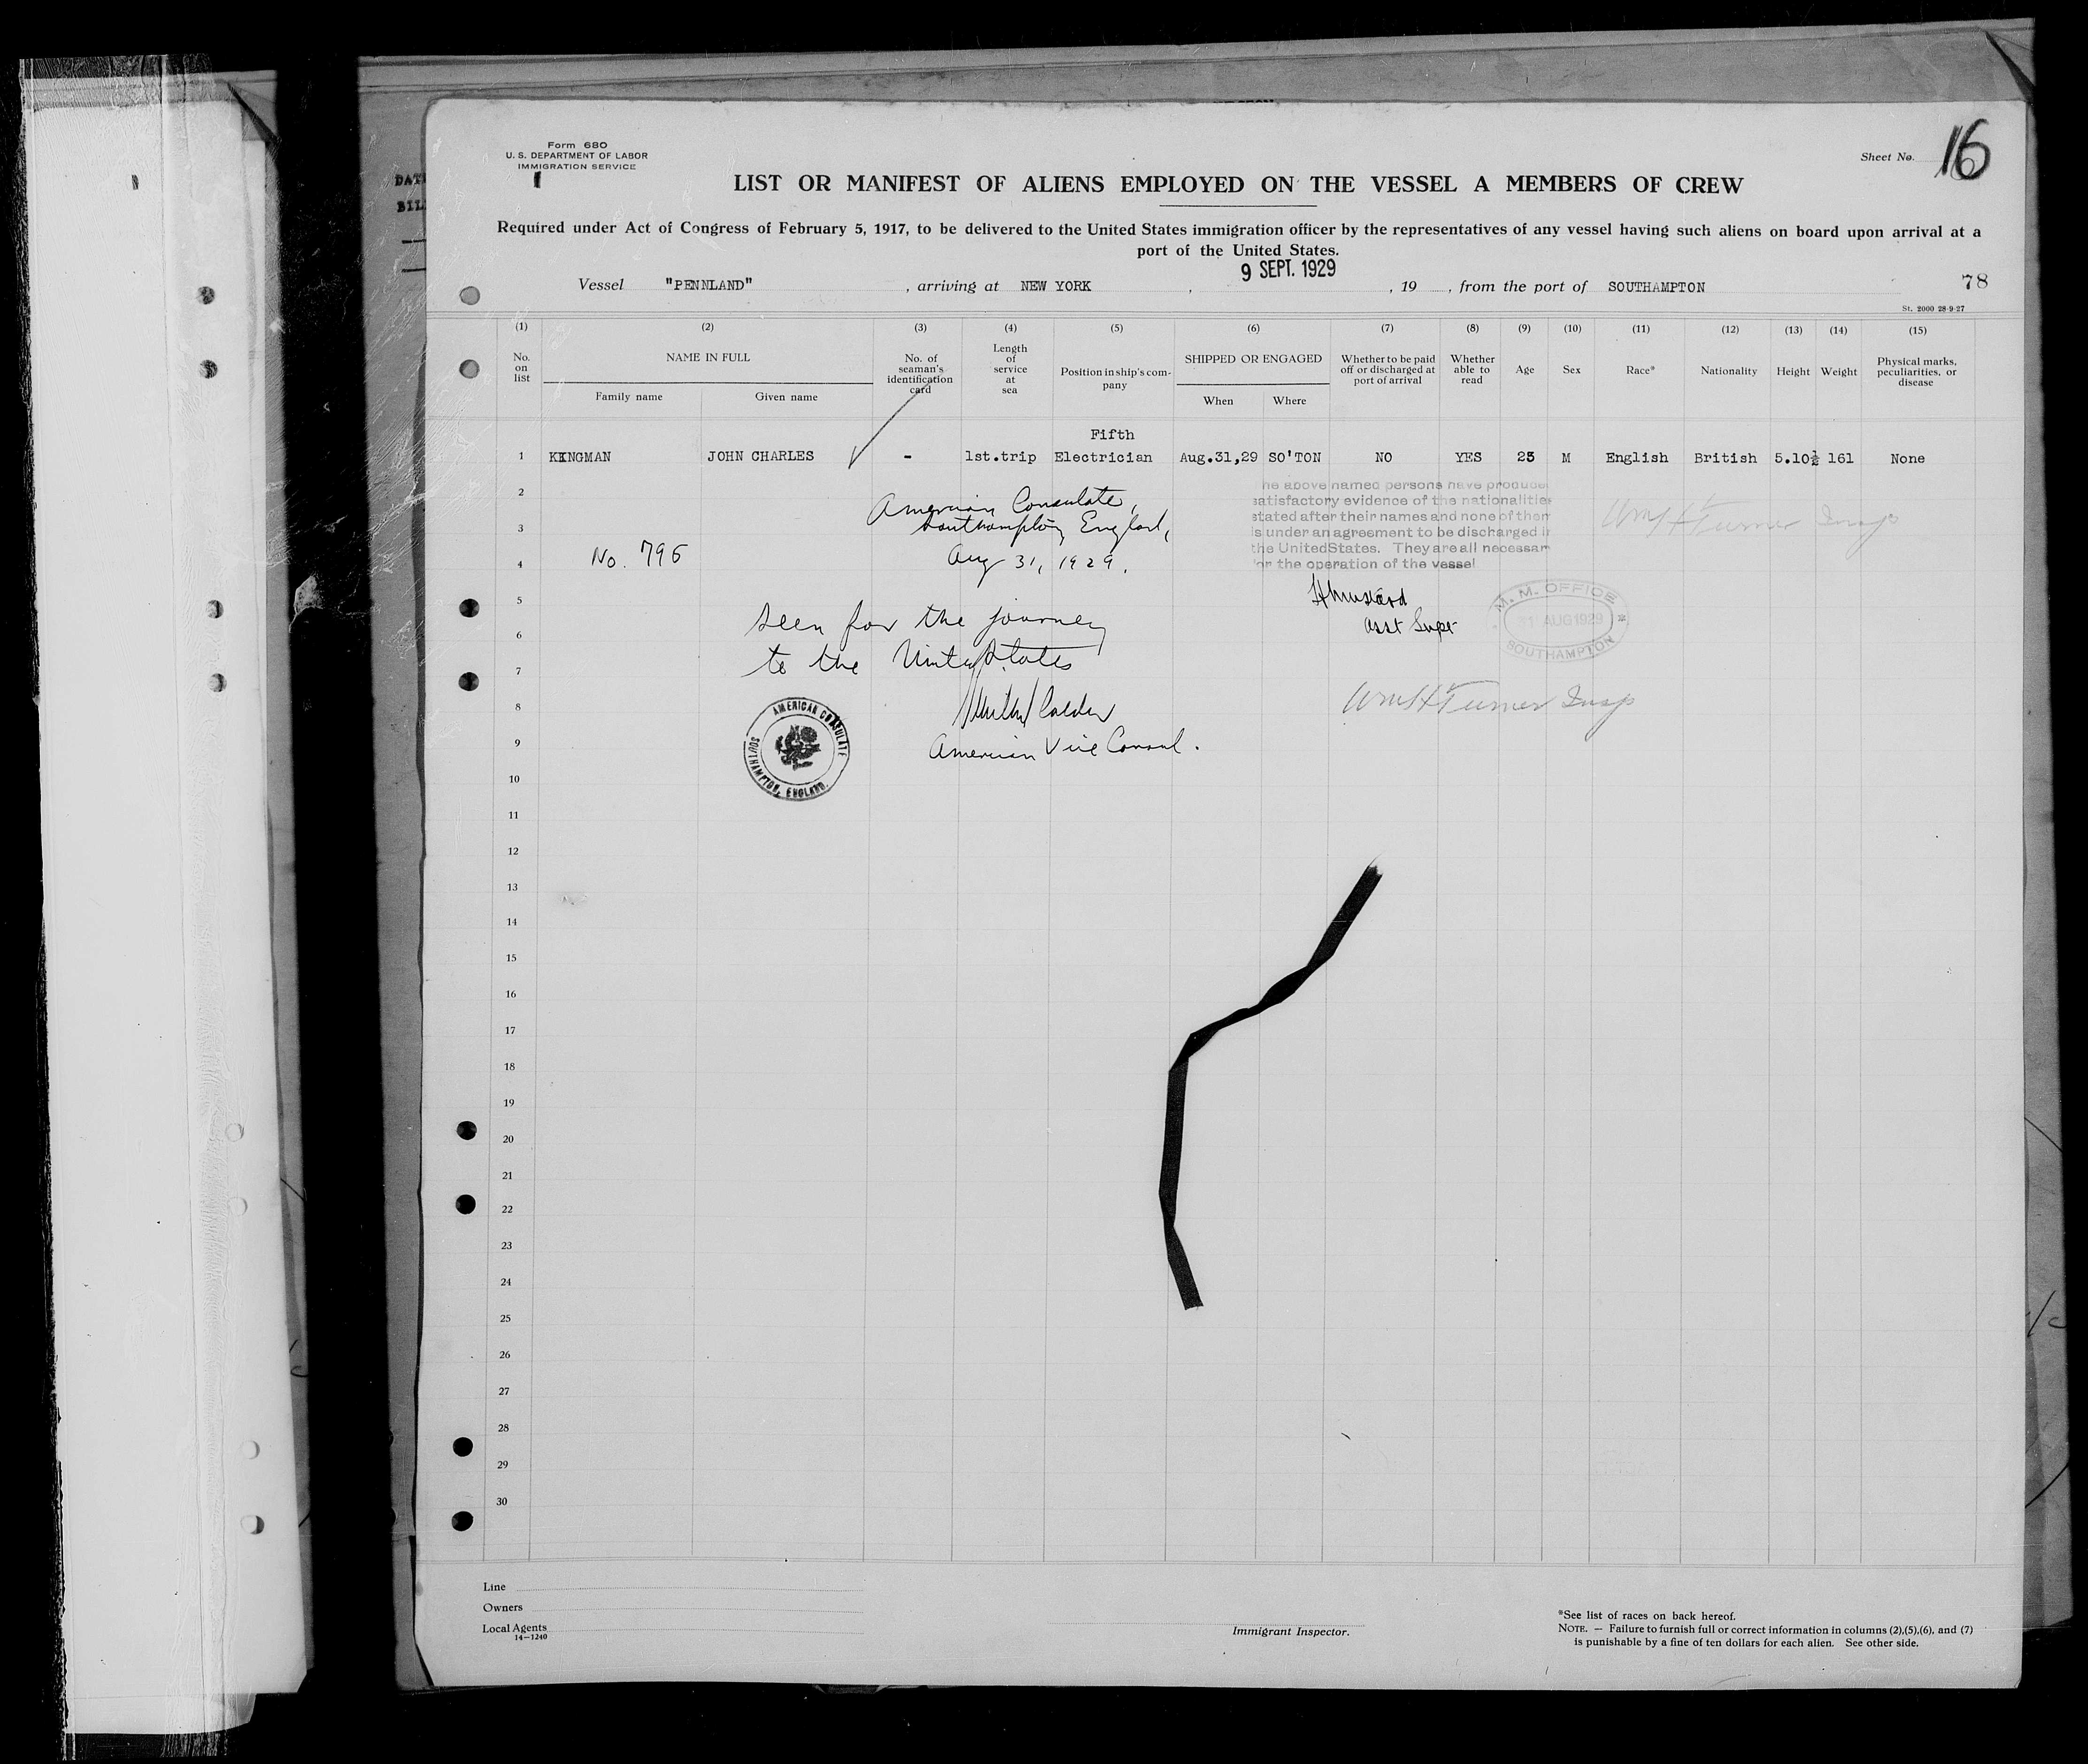 Form 680
U. S. DEPARTMENT OF LABOR
IMMIGRATION SERVICE
Sheet No. 16
DAT
BIL
LIST OR MANIFEST OF ALIENS EMPLOYED ON THE VESSEL A MEMBERS OF CREW
Required under Act of Congress of February 5, 1917, to be delivered to the United States immigration officer by the representatives of any vessel having such aliens on board upon arrival at a
port of the United States.
9 SEPT. 1929
Vessel "PENNLAND" , arriving at NEW YORK , , 19 , from the port of SOUTHAMPTON 78
St. 2000 28-9-27
(1) (2) (3) (4) (5) (6) (7) (8) (9) (10) (11) (12) (13) (14) (15)
No. on list
NAME IN FULL
Family name
Given name
No. of seaman's identification card
Length of service at sea
Position in ship's company
SHIPPED OR ENGAGED
When
Where
Whether to be paid off or discharged at port of arrival
Whether able to read
Age
Sex
Race*
Nationality
Height
Weight
Physical marks, peculiarities, or disease
Fifth
1 KINGMAN JOHN CHARLES - 1st.trip Electrician Aug.31,29 SO'TON NO YES 25 M English British 5.10½ 161 None
2
3
4
5
6
7
8
9
10
11
12
13
14
15
16
17
18
19
20
21
22
23
24
25
26
27
28
29
30
American Consulate,
Southampton, England,
No. 795
Aug 31, 1929.
Seen for the journey
to the United States
Calder
American Vice Consul.
AMERICAN CONSULATE
SOUTHAMPTON, ENGLAND.
he above named persons have produce
satisfactory evidence of the nationalitie
stated after their names and none of them
is under an agreement to be discharged in
the United States. They are all necessar
for the operation of the vessel
Asst Supt
M. M. OFFICE
31 AUG 1929
SOUTHAMPTON
Wm H Turner Insp
Wm H Turner Insp
Line
Owners
Local Agents
14-1240
Immigrant Inspector.
*See list of races on back hereof.
NOTE. — Failure to furnish full or correct information in columns (2),(5),(6), and (7)
is punishable by a fine of ten dollars for each alien. See other side.